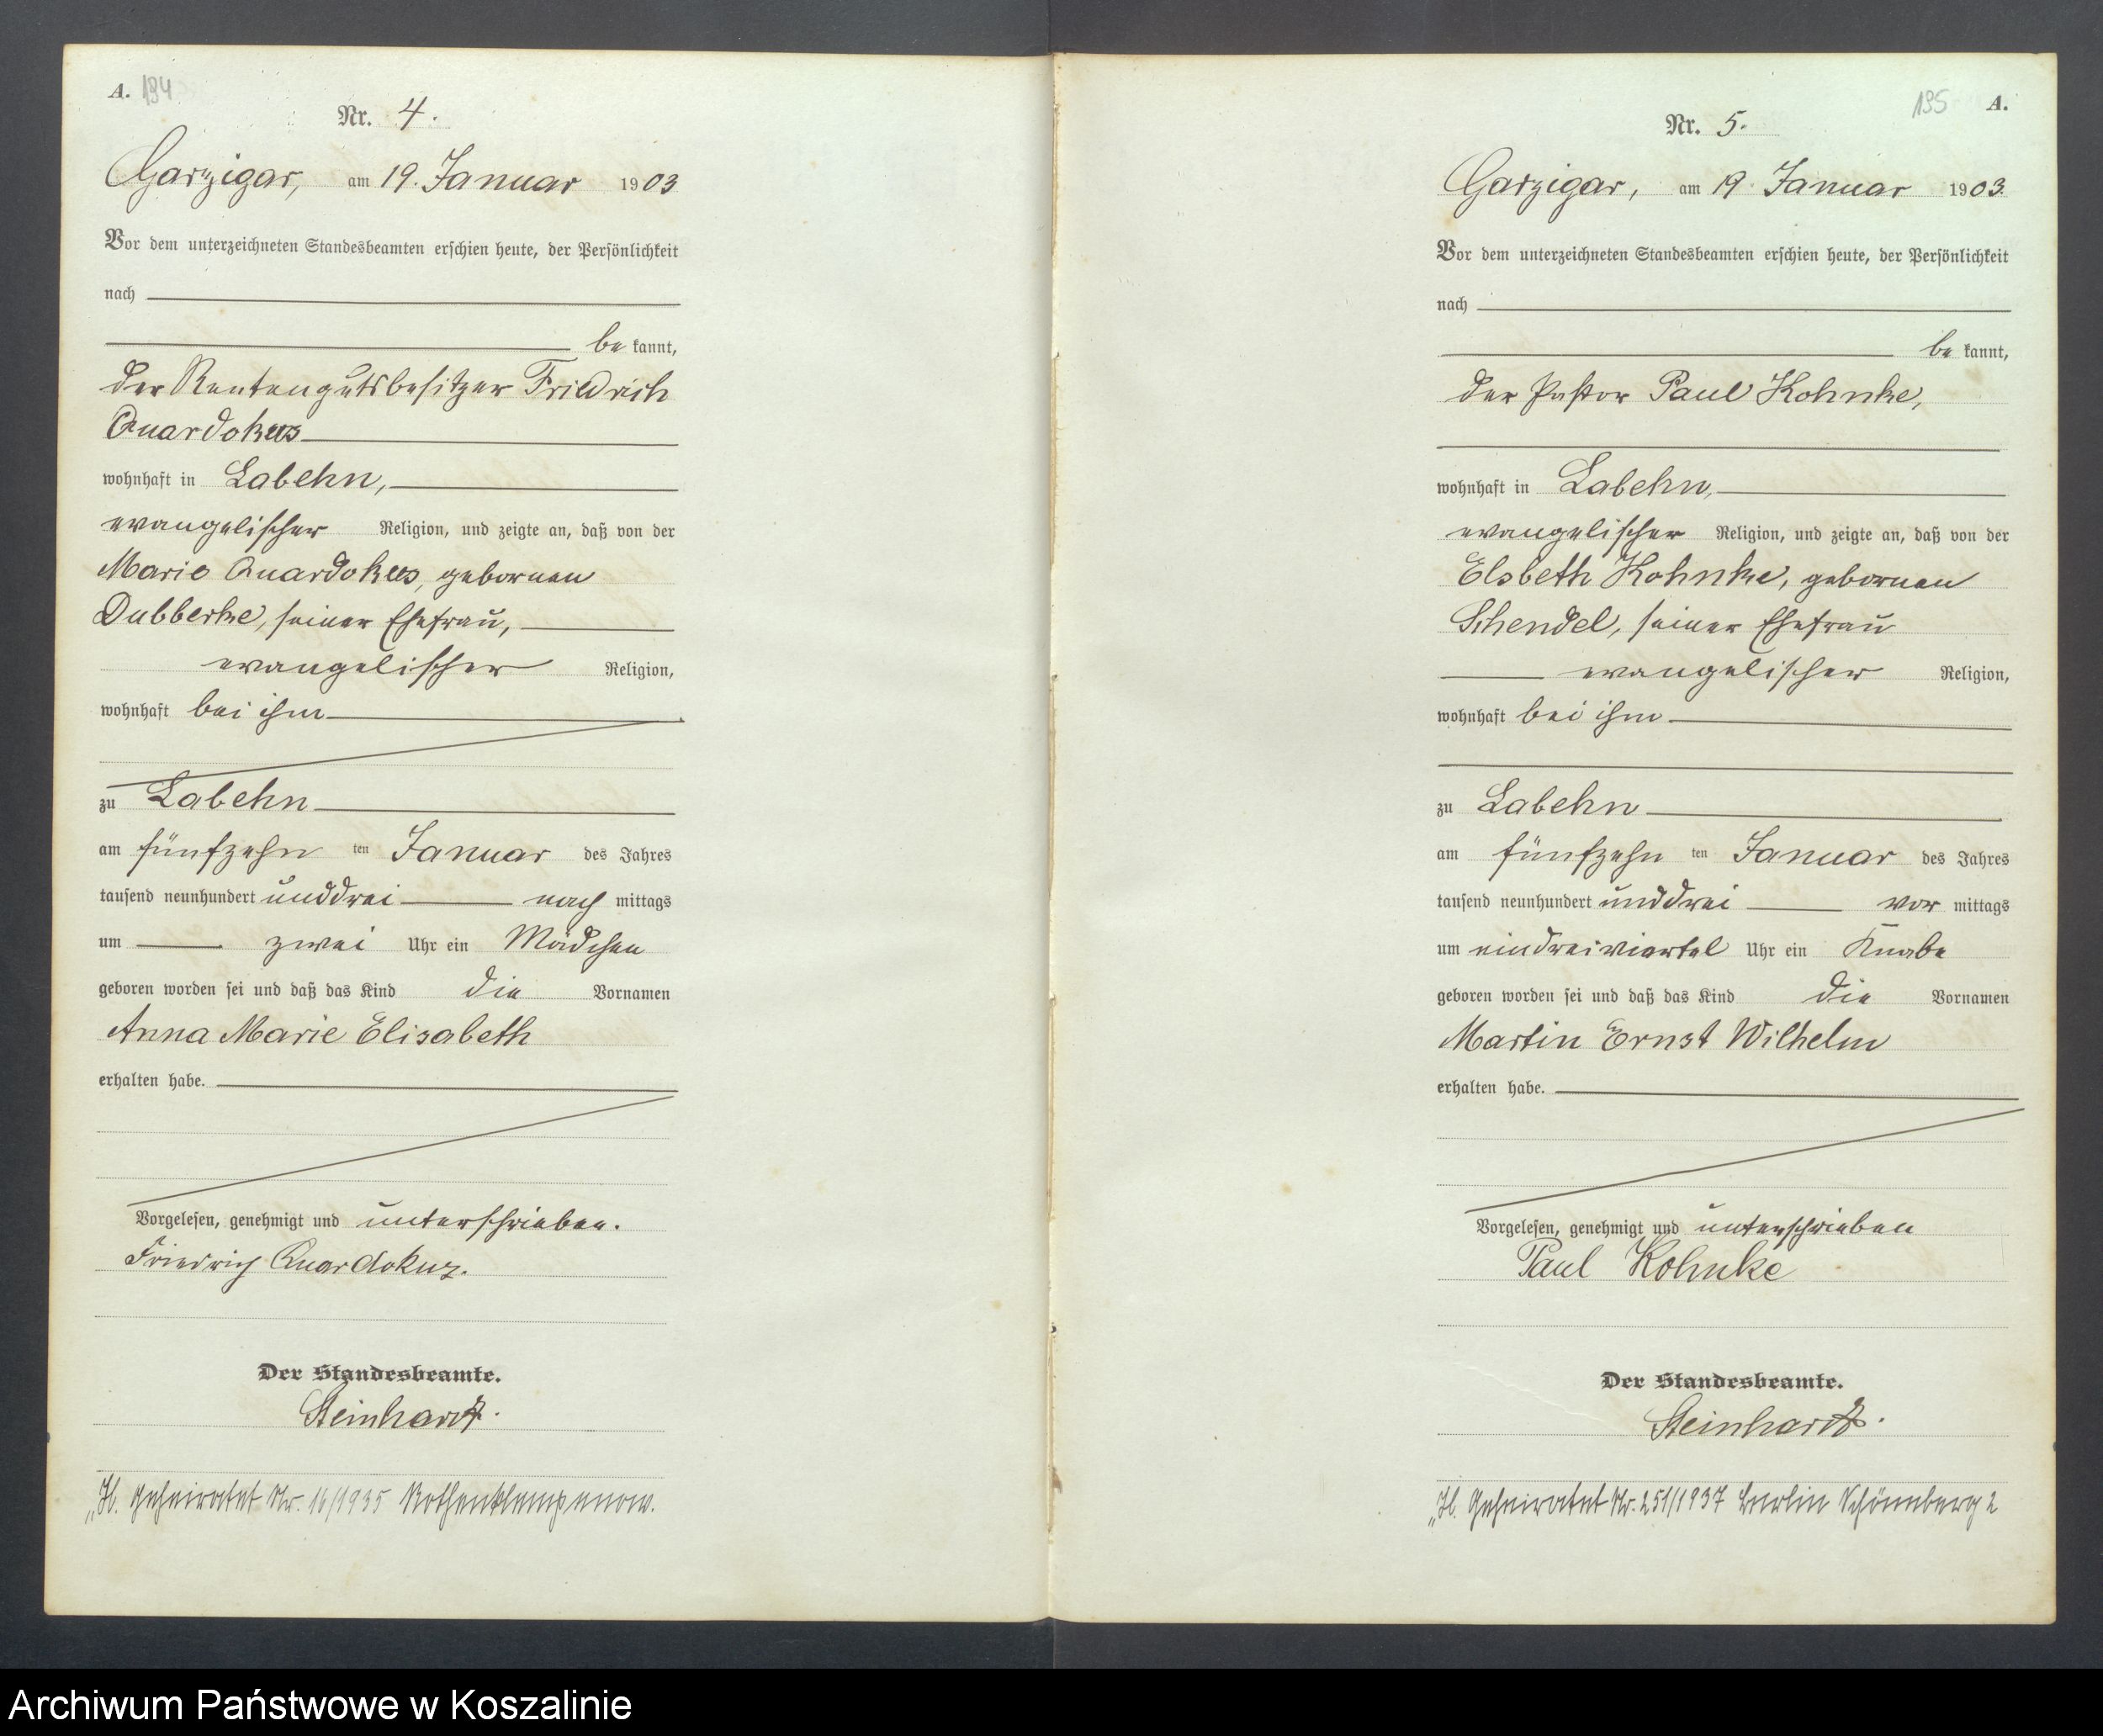 A. 194
Nr. 4.
Garzigar, am 19. Januar 1903
Vor dem unterzeichneten Standesbeamten erschien heute, der Persönlichkeit
nach
be kannt,
der Rentengutsbesitzer Friedrich
Quardokus
wohnhaft in Labehn,
evangelischer Religion, und zeigte an, daß von der
Marie Quardokus, gebornen
Dubberke, seiner Ehefrau,
evangelischer Religion,
wohnhaft bei ihm
zu Labehn
am fünfzehn ten Januar des Jahres
tausend neunhundert unddrei nach mittags
um zwei Uhr ein Mädchen
geboren worden sei und daß das Kind die Vornamen
Anna Marie Elisabeth
erhalten habe.
Vorgelesen, genehmigt und unterschrieben.
Friedrich Quardokus.
Der Standesbeamte.
Steinhardt.
„H. Geheiratet Nr. 16/1935 Rothenklempenow.
195 A.
Nr. 5.
Garzigar, am 19. Januar 1903.
Vor dem unterzeichneten Standesbeamten erschien heute, der Persönlichkeit
nach
be kannt,
der Pastor Paul Kohnke,
wohnhaft in Labehn,
evangelischer Religion, und zeigte an, daß von der
Elsbeth Kohnke, gebornen
Schendel, seiner Ehefrau
evangelischer Religion,
wohnhaft bei ihm
zu Labehn
am fünfzehn ten Januar des Jahres
tausend neunhundert unddrei vor mittags
um eindreiviertel Uhr ein Knabe
geboren worden sei und daß das Kind die Vornamen
Martin Ernst Wilhelm
erhalten habe.
Vorgelesen, genehmigt und unterschrieben
Paul Kohnke
Der Standesbeamte.
Steinhardt.
„H. Geheiratet Nr. 251/1937 Berlin Schöneberg 2
Archiwum Państwowe w Koszalinie